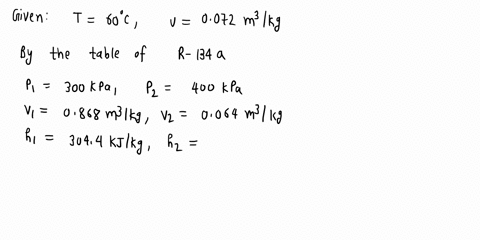 Given: T = 60°C, v = 0.072 m³/kg
By the table of R-134a
P₁ = 300 kPa, P₂ = 400 kPa
V₁ = 0.868 m³/kg, V₂ = 0.064 m³/kg
h₁ = 304.4 KJ/kg, h₂ =